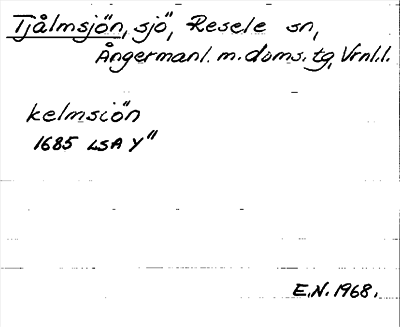 Tjälmsjön, sjö, Resele sn,
Ångermanl. m. doms. tg, Vrnl.l.
kelmsiön
1685 LSA Y"
E.N. 1968.